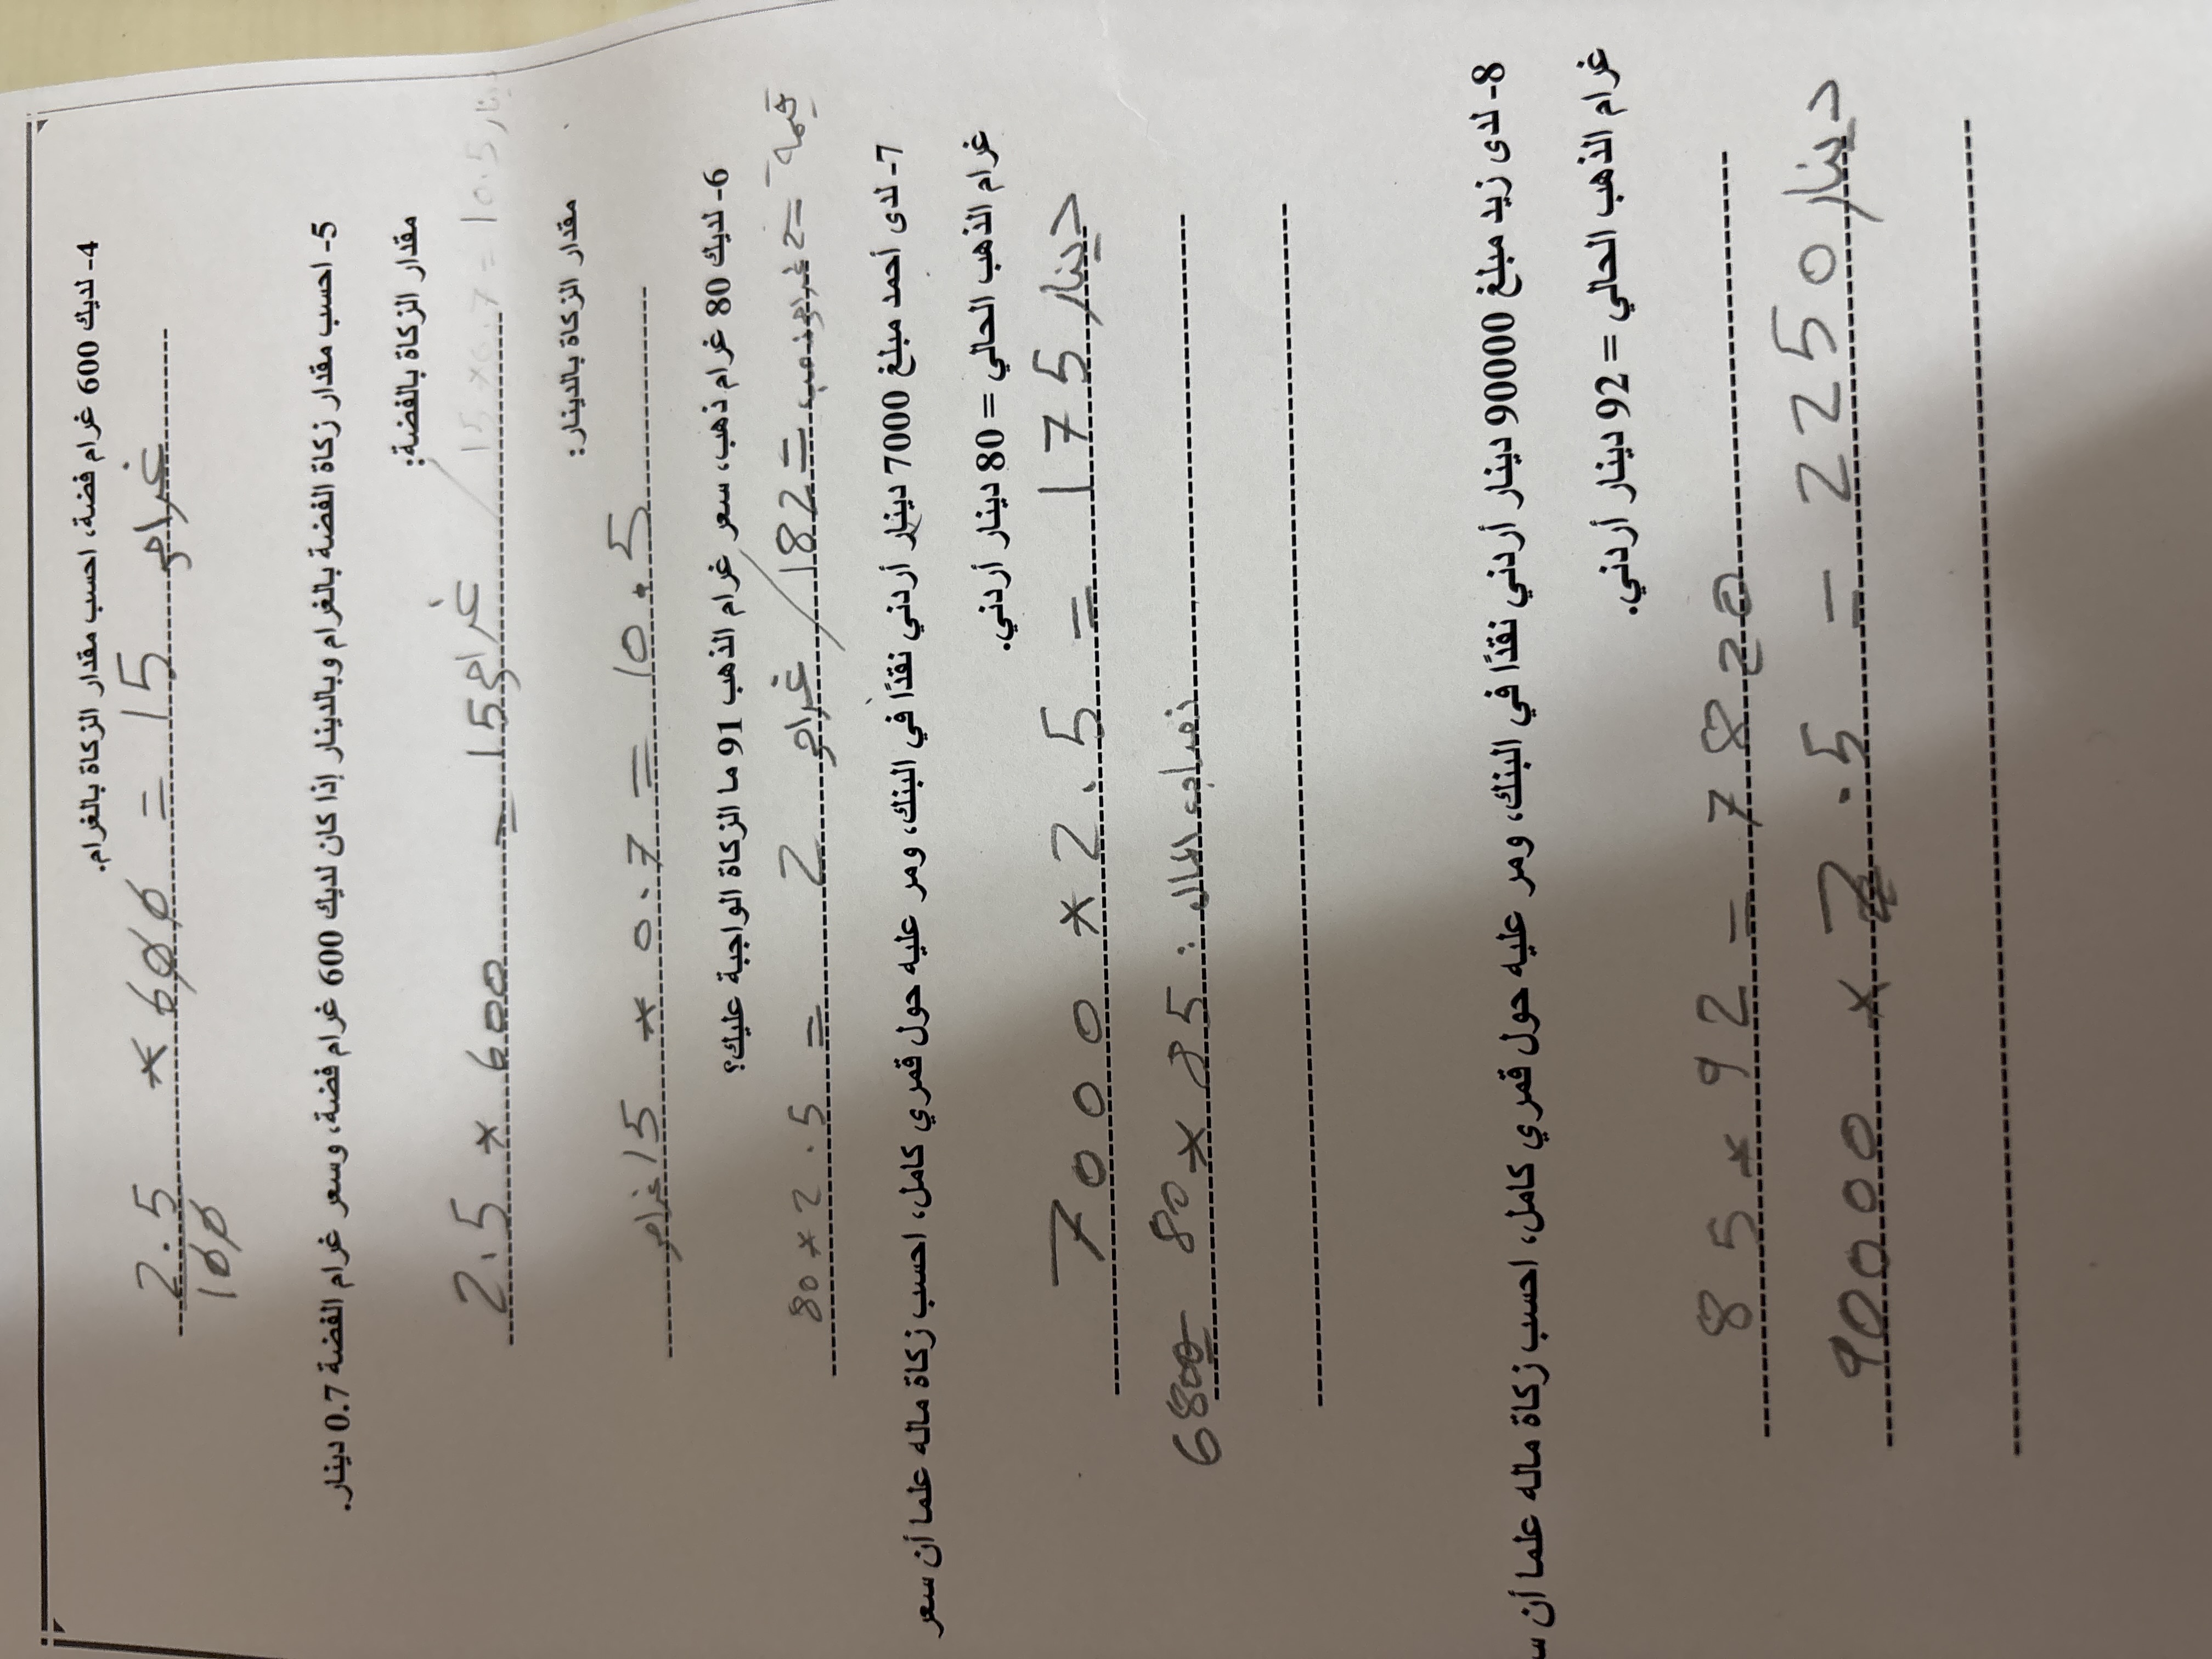 4- لديك 600 غرام فضة، احسب مقدار الزكاة بالغرام.
2.5/100 * 600 = 15 غرام
5- احسب مقدار زكاة الفضة بالغرام وبالدينار إذا كان لديك 600 غرام فضة، وسعر غرام الفضة 0.7 دينار.
مقدار الزكاة بالفضة:
2.5 * 600 = 15 غرام / 15 * 0.7 = 10.5 دينار
مقدار الزكاة بالدينار:
15 غرام * 0.7 = 10.5
6- لديك 80 غرام ذهب، سعر غرام الذهب 91 ما الزكاة الواجبة عليك؟
80 * 2.5 = 2 غرام / 182 = = قيمة
7- لدى أحمد مبلغ 7000 دينار أردني نقدًا في البنك، ومر عليه حول قمري كامل، احسب زكاة ماله علما أن سعر
غرام الذهب الحالي = 80 دينار أردني.
7000 * 2.5 = 175 دينار
6800 80 * 85 : المال
8- لدى زيد مبلغ 90000 دينار أردني نقدًا في البنك، ومر عليه حول قمري كامل، احسب زكاة ماله علما أن س
غرام الذهب الحالي = 92 دينار أردني.
85 * 92 = 7820
90000 * 2.5 = 2250 دينار